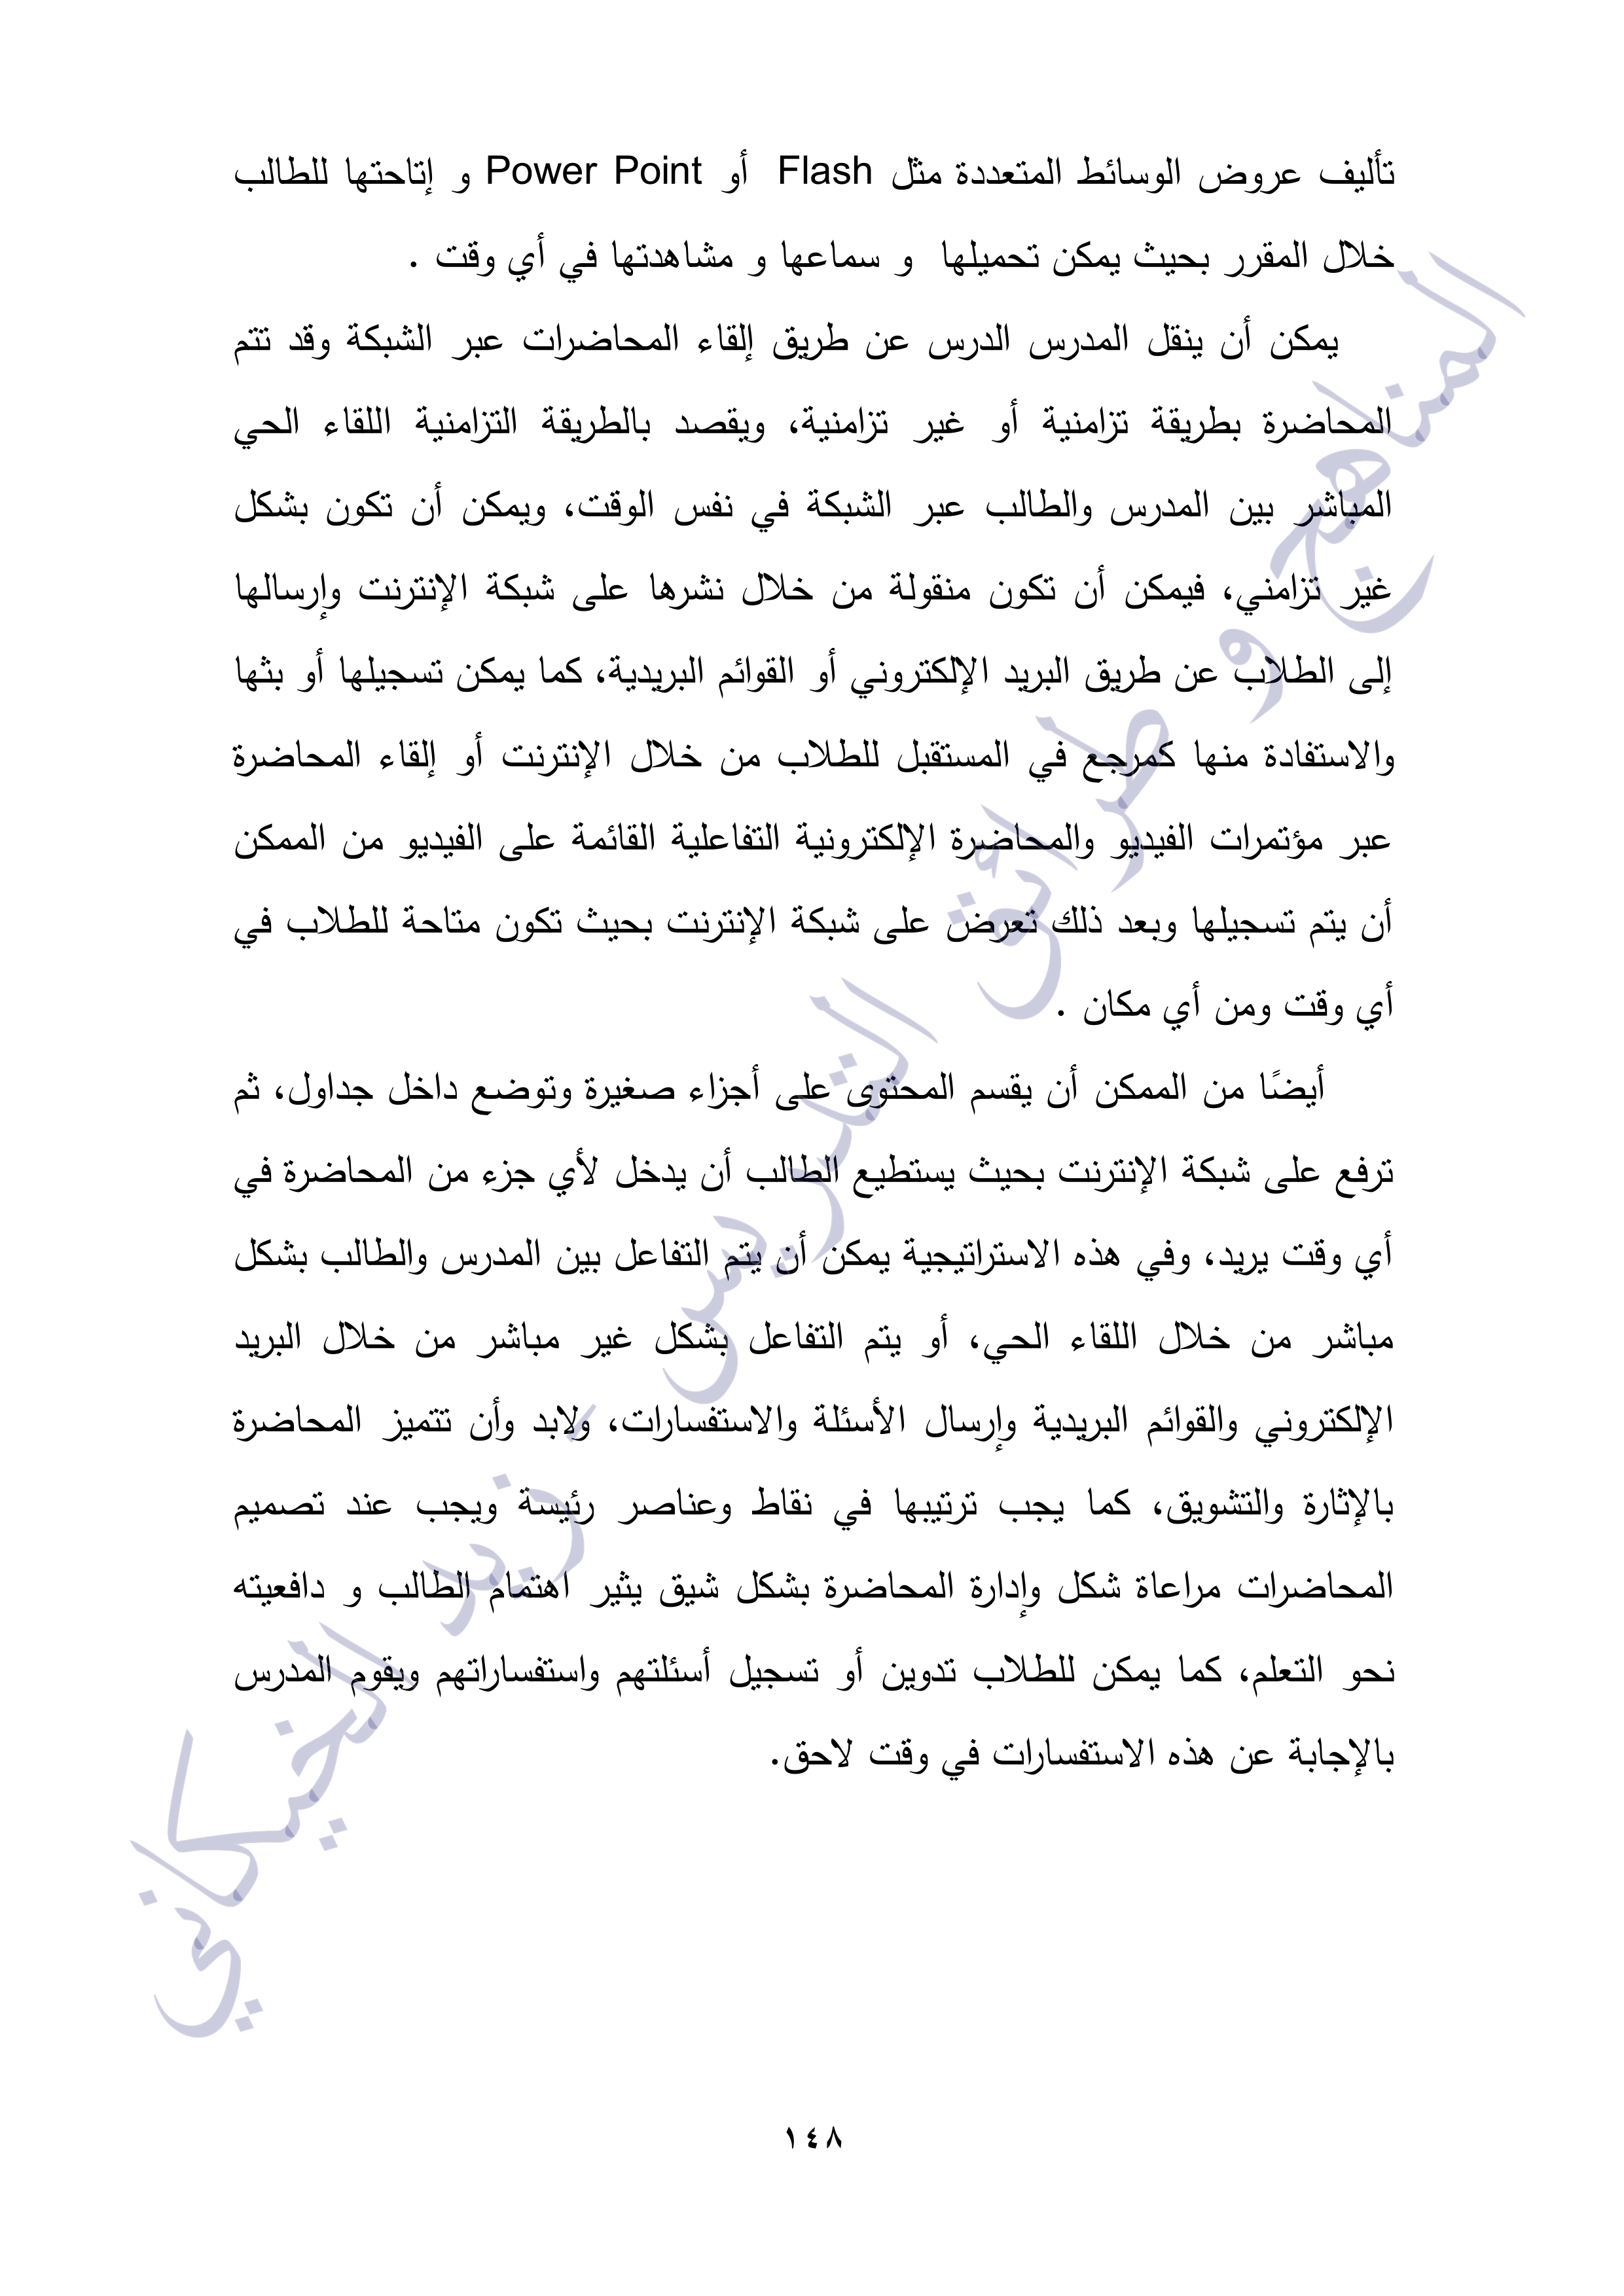 تأليف عروض الوسائط المتعددة مثل Flash أو Power Point و إتاحتها للطالب
خلال المقرر بحيث يمكن تحميلها و سماعها و مشاهدتها في أي وقت .
يمكن أن ينقل المدرس الدرس عن طريق إلقاء المحاضرات عبر الشبكة وقد تتم
المحاضرة بطريقة تزامنية أو غير تزامنية، ويقصد بالطريقة التزامنية اللقاء الحي
المباشر بين المدرس والطالب عبر الشبكة في نفس الوقت، ويمكن أن تكون بشكل
غير تزامني، فيمكن أن تكون منقولة من خلال نشرها على شبكة الإنترنت وإرسالها
إلى الطلاب عن طريق البريد الإلكتروني أو القوائم البريدية، كما يمكن تسجيلها أو بثها
والاستفادة منها كمرجع في المستقبل للطلاب من خلال الإنترنت أو إلقاء المحاضرة
عبر مؤتمرات الفيديو والمحاضرة الإلكترونية التفاعلية القائمة على الفيديو من الممكن
أن يتم تسجيلها وبعد ذلك تعرض على شبكة الإنترنت بحيث تكون متاحة للطلاب في
أي وقت ومن أي مكان .
أيضًا من الممكن أن يقسم المحتوى على أجزاء صغيرة وتوضع داخل جداول، ثم
ترفع على شبكة الإنترنت بحيث يستطيع الطالب أن يدخل لأي جزء من المحاضرة في
أي وقت يريد، وفي هذه الاستراتيجية يمكن أن يتم التفاعل بين المدرس والطالب بشكل
مباشر من خلال اللقاء الحي، أو يتم التفاعل بشكل غير مباشر من خلال البريد
الإلكتروني والقوائم البريدية وإرسال الأسئلة والاستفسارات، ولابد وأن تتميز المحاضرة
بالإثارة والتشويق، كما يجب ترتيبها في نقاط وعناصر رئيسة ويجب عند تصميم
المحاضرات مراعاة شكل وإدارة المحاضرة بشكل شيق يثير اهتمام الطالب و دافعيته
نحو التعلم، كما يمكن للطلاب تدوين أو تسجيل أسئلتهم واستفساراتهم ويقوم المدرس
بالإجابة عن هذه الاستفسارات في وقت لاحق.
المناهج و طرائق التدريس - زيد الخيكاني
١٤٨